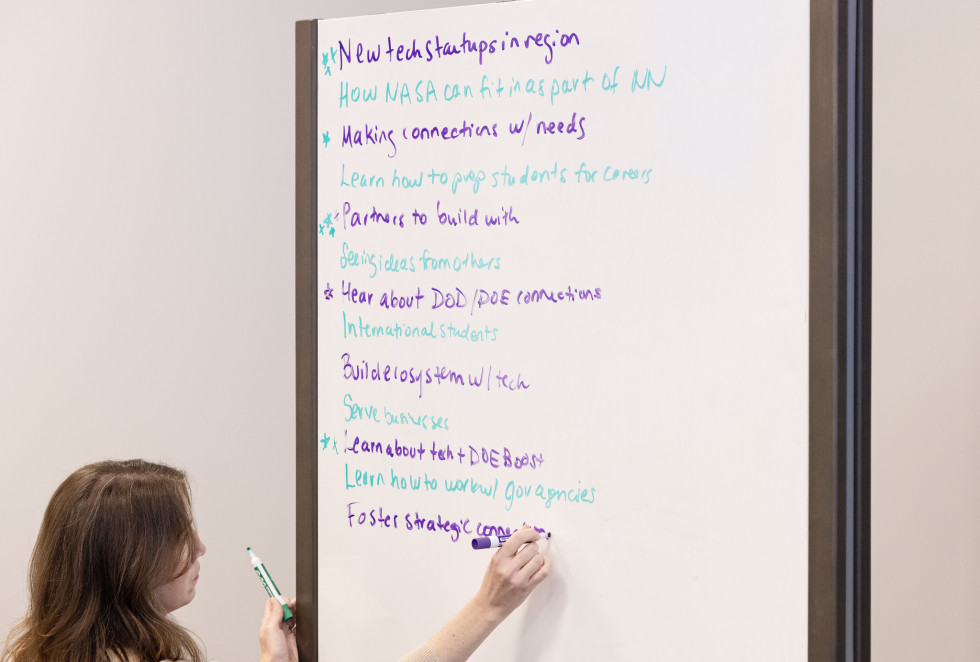 New tech startups in region
How NASA can fit in as part of NN
Making connections w/ needs
Learn how to prep students for careers
Partners to build with
Seeing ideas from others
Hear about DOD/DOE connections
International students
Build ecosystem w/ tech
Serve businesses
Learn about tech + DOE Boost
Learn how to work w/ gov agencies
Foster strategic